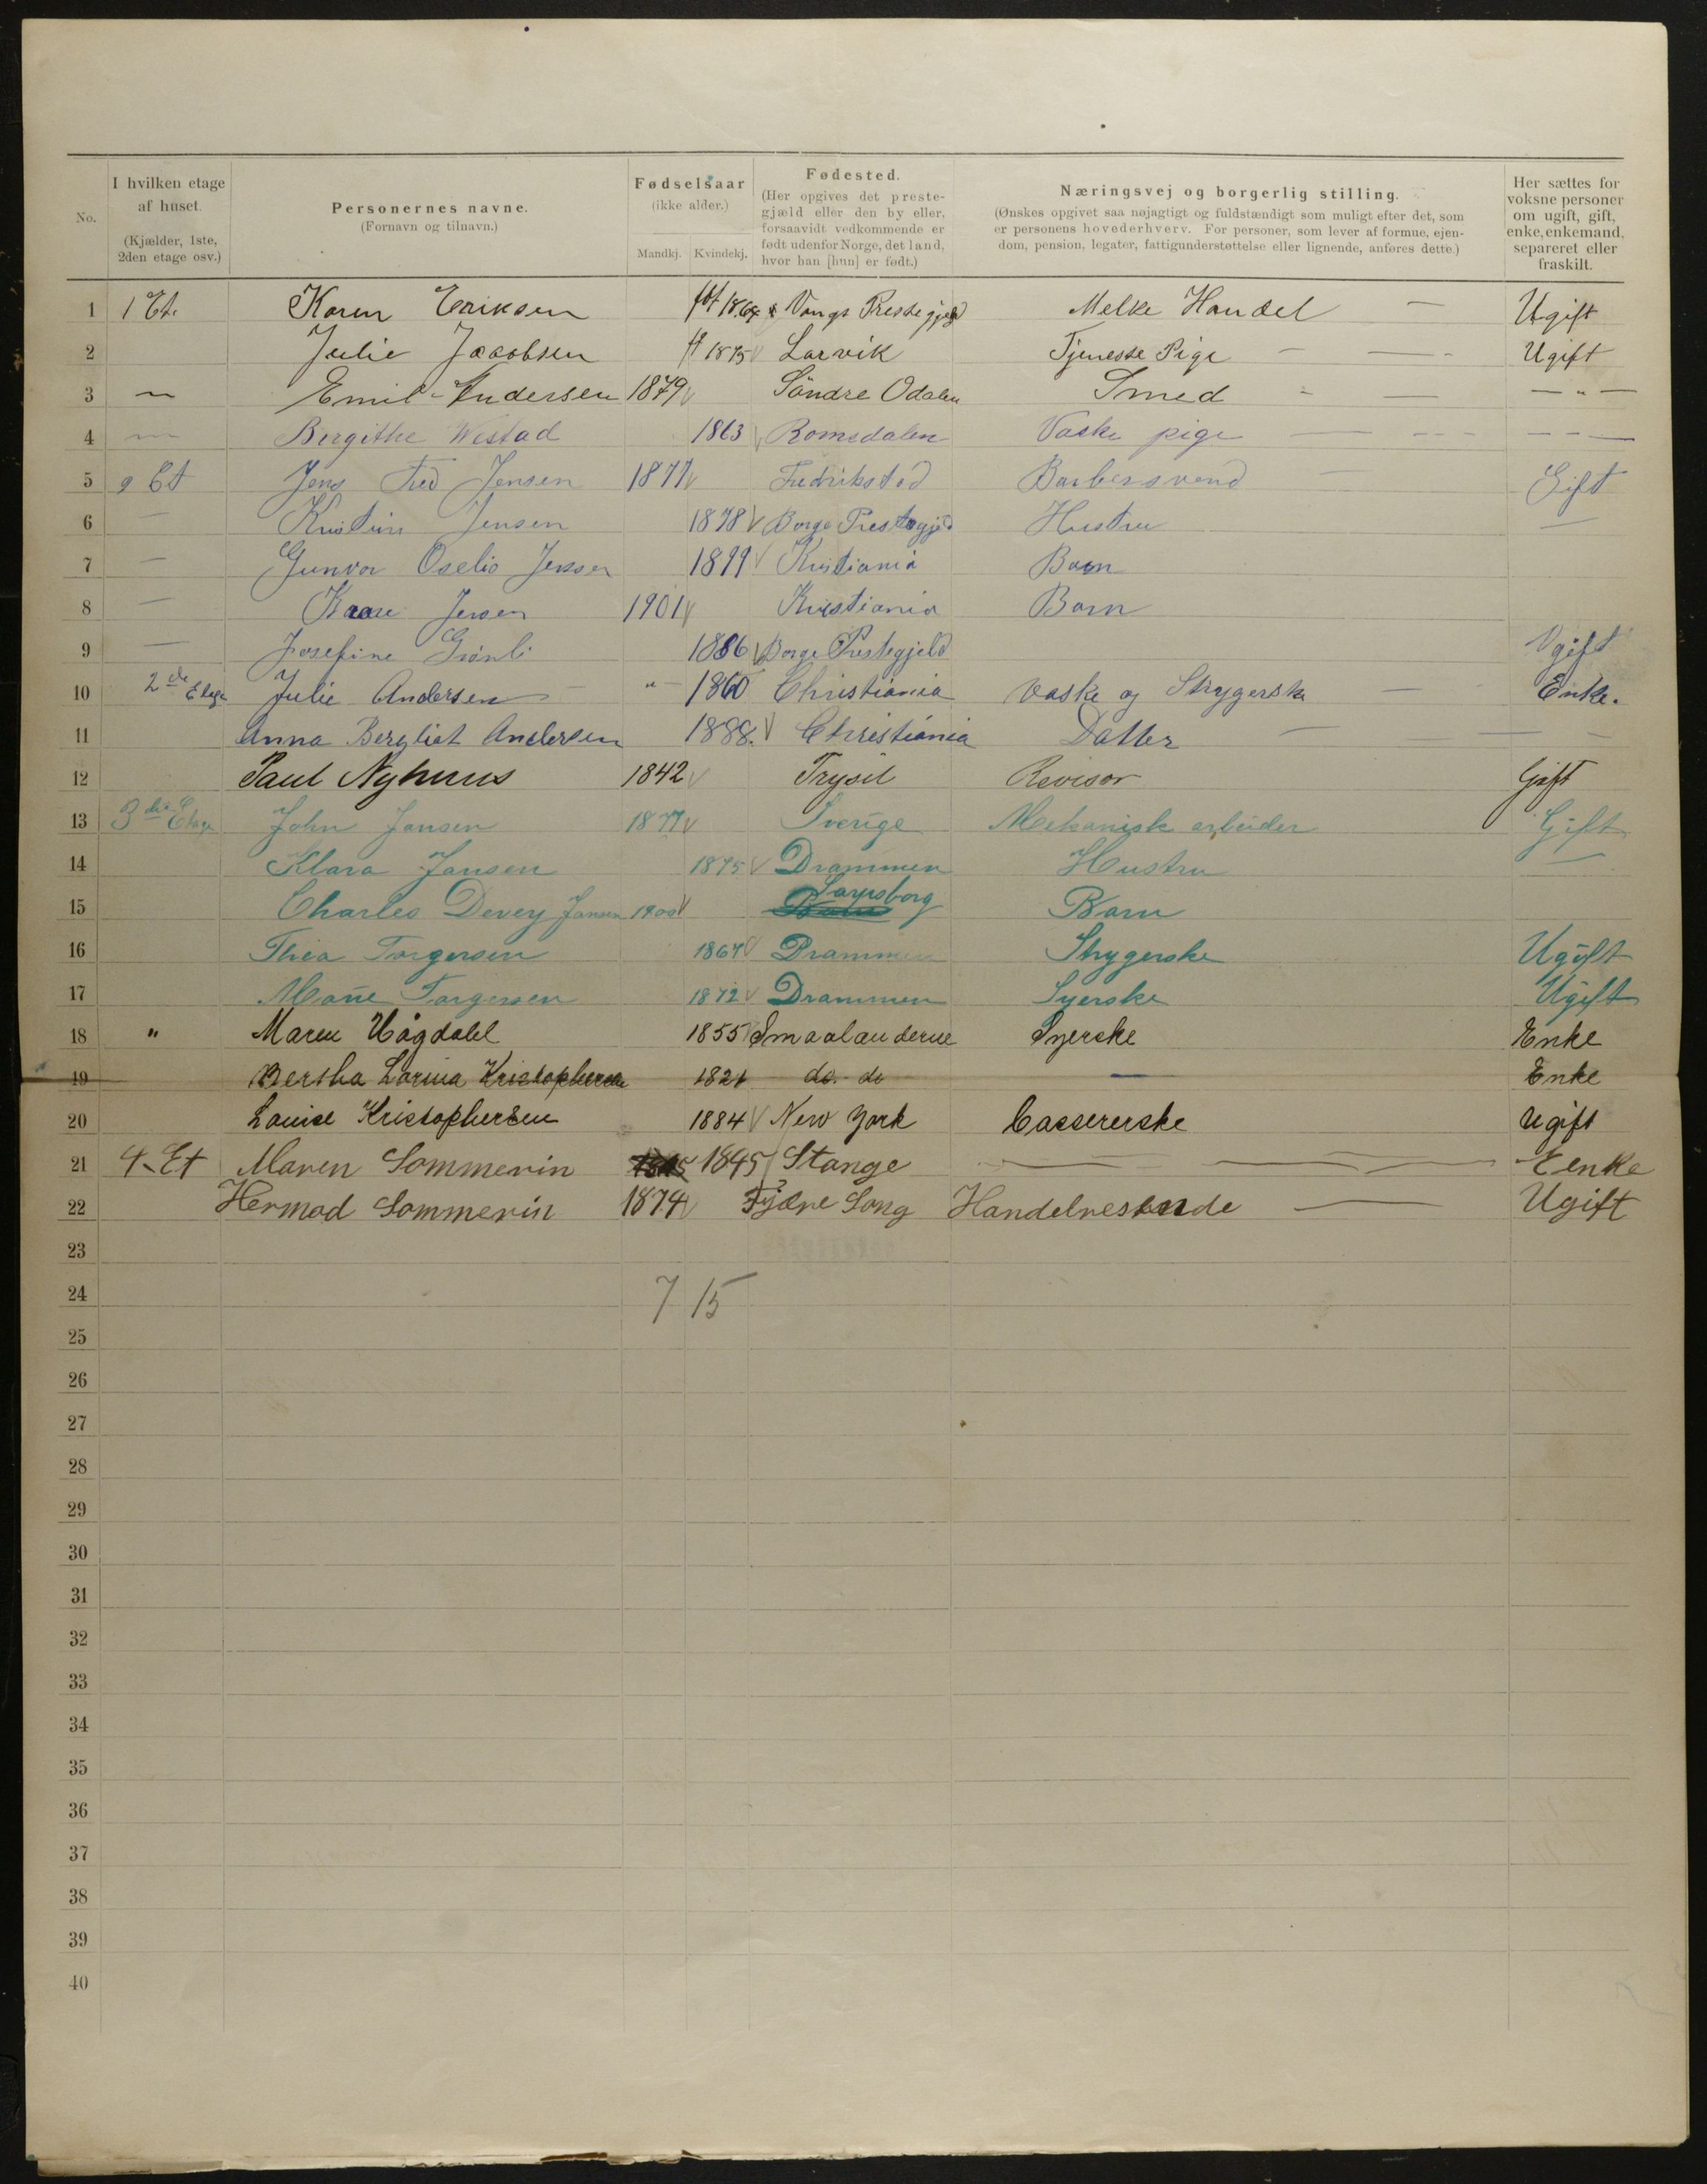 No. | I hvilken etage af huset. (Kjælder, 1ste, 2den etage osv.) | Personernes navne. (Fornavn og tilnavn.) | Fødselsaar (ikke alder.) Mandkj. Kvindekj. | Fødested. (Her opgives det prestegjæld eller den by eller, forsaavidt vedkommende er født udenfor Norge, det land, hvor han [hun] er født.) | Næringsvej og borgerlig stilling. (Ønskes opgivet saa nøjagtigt og fuldstændigt som muligt efter det, som er personens hovederhverv. For personer, som lever af formue, ejendom, pension, legater, fattigunderstøttelse eller lignende, anføres dette.) | Her sættes for voksne personer om ugift, gift, enke, enkemand, separeret eller fraskilt.
1 1 Et. Karen Eriksen 1864 Vangs Prestegjeld Melke Handel — Ugift
2 Julie Jacobsen 1875 Larvik Tjeneste Pige — — Ugift
3 — Emil Andersen 1879 Söndre Odalen Smed - — — " —
4 — Bergithe Westad 1863 Romsdalen Vaske pige — — —
5 2 Et Jens Fred Jensen 1877 Fredrikstad Barbersvend — Gift
6 — Kristin Jensen 1878 Borge Prestegjeld Hustru —
7 — Gunvor Oselio Jensen 1899 Kristiania Barn
8 — Kaare Jensen 1901 Kristiania Barn
9 — Josefine Grönli 1886 Borge Prestegjeld Ugift
10 2de Etage Julie Andersen — " 1860 Christiania Vaske og Strygerske — Enke.
11 Anna Bergliot Andersen 1888. Christiania Datter — — —
12 Paul Nyhuus 1842 Trysil Revisor Gift
13 3die Etage John Jansen 1877 Sverige Mekanisk arbeider Gift
14 Klara Jansen 1875 Drammen Hustru —
15 Charles Devey Jansen 1900 Sarpsborg Barn
16 Thea Torgersen 1864 Drammen Strygerske Ugift
17 Marie Torgersen 1872 Drammen Syerske Ugift
18 " Maren Hågdahl 1855 Smaalandene Syerske Enke
19 Bertha Larina Kristophersen 1821 do. do — Enke
20 Louise Kristophersen 1884 New York Cassererske Ugift
21 4 Et Maren Sommerin 1845 Stange — — — Eenke
22 Hermod Sommerin 1874 Fjære Song Handelresende — Ugift
23
24 7 15
25
26
27
28
29
30
31
32
33
34
35
36
37
38
39
40